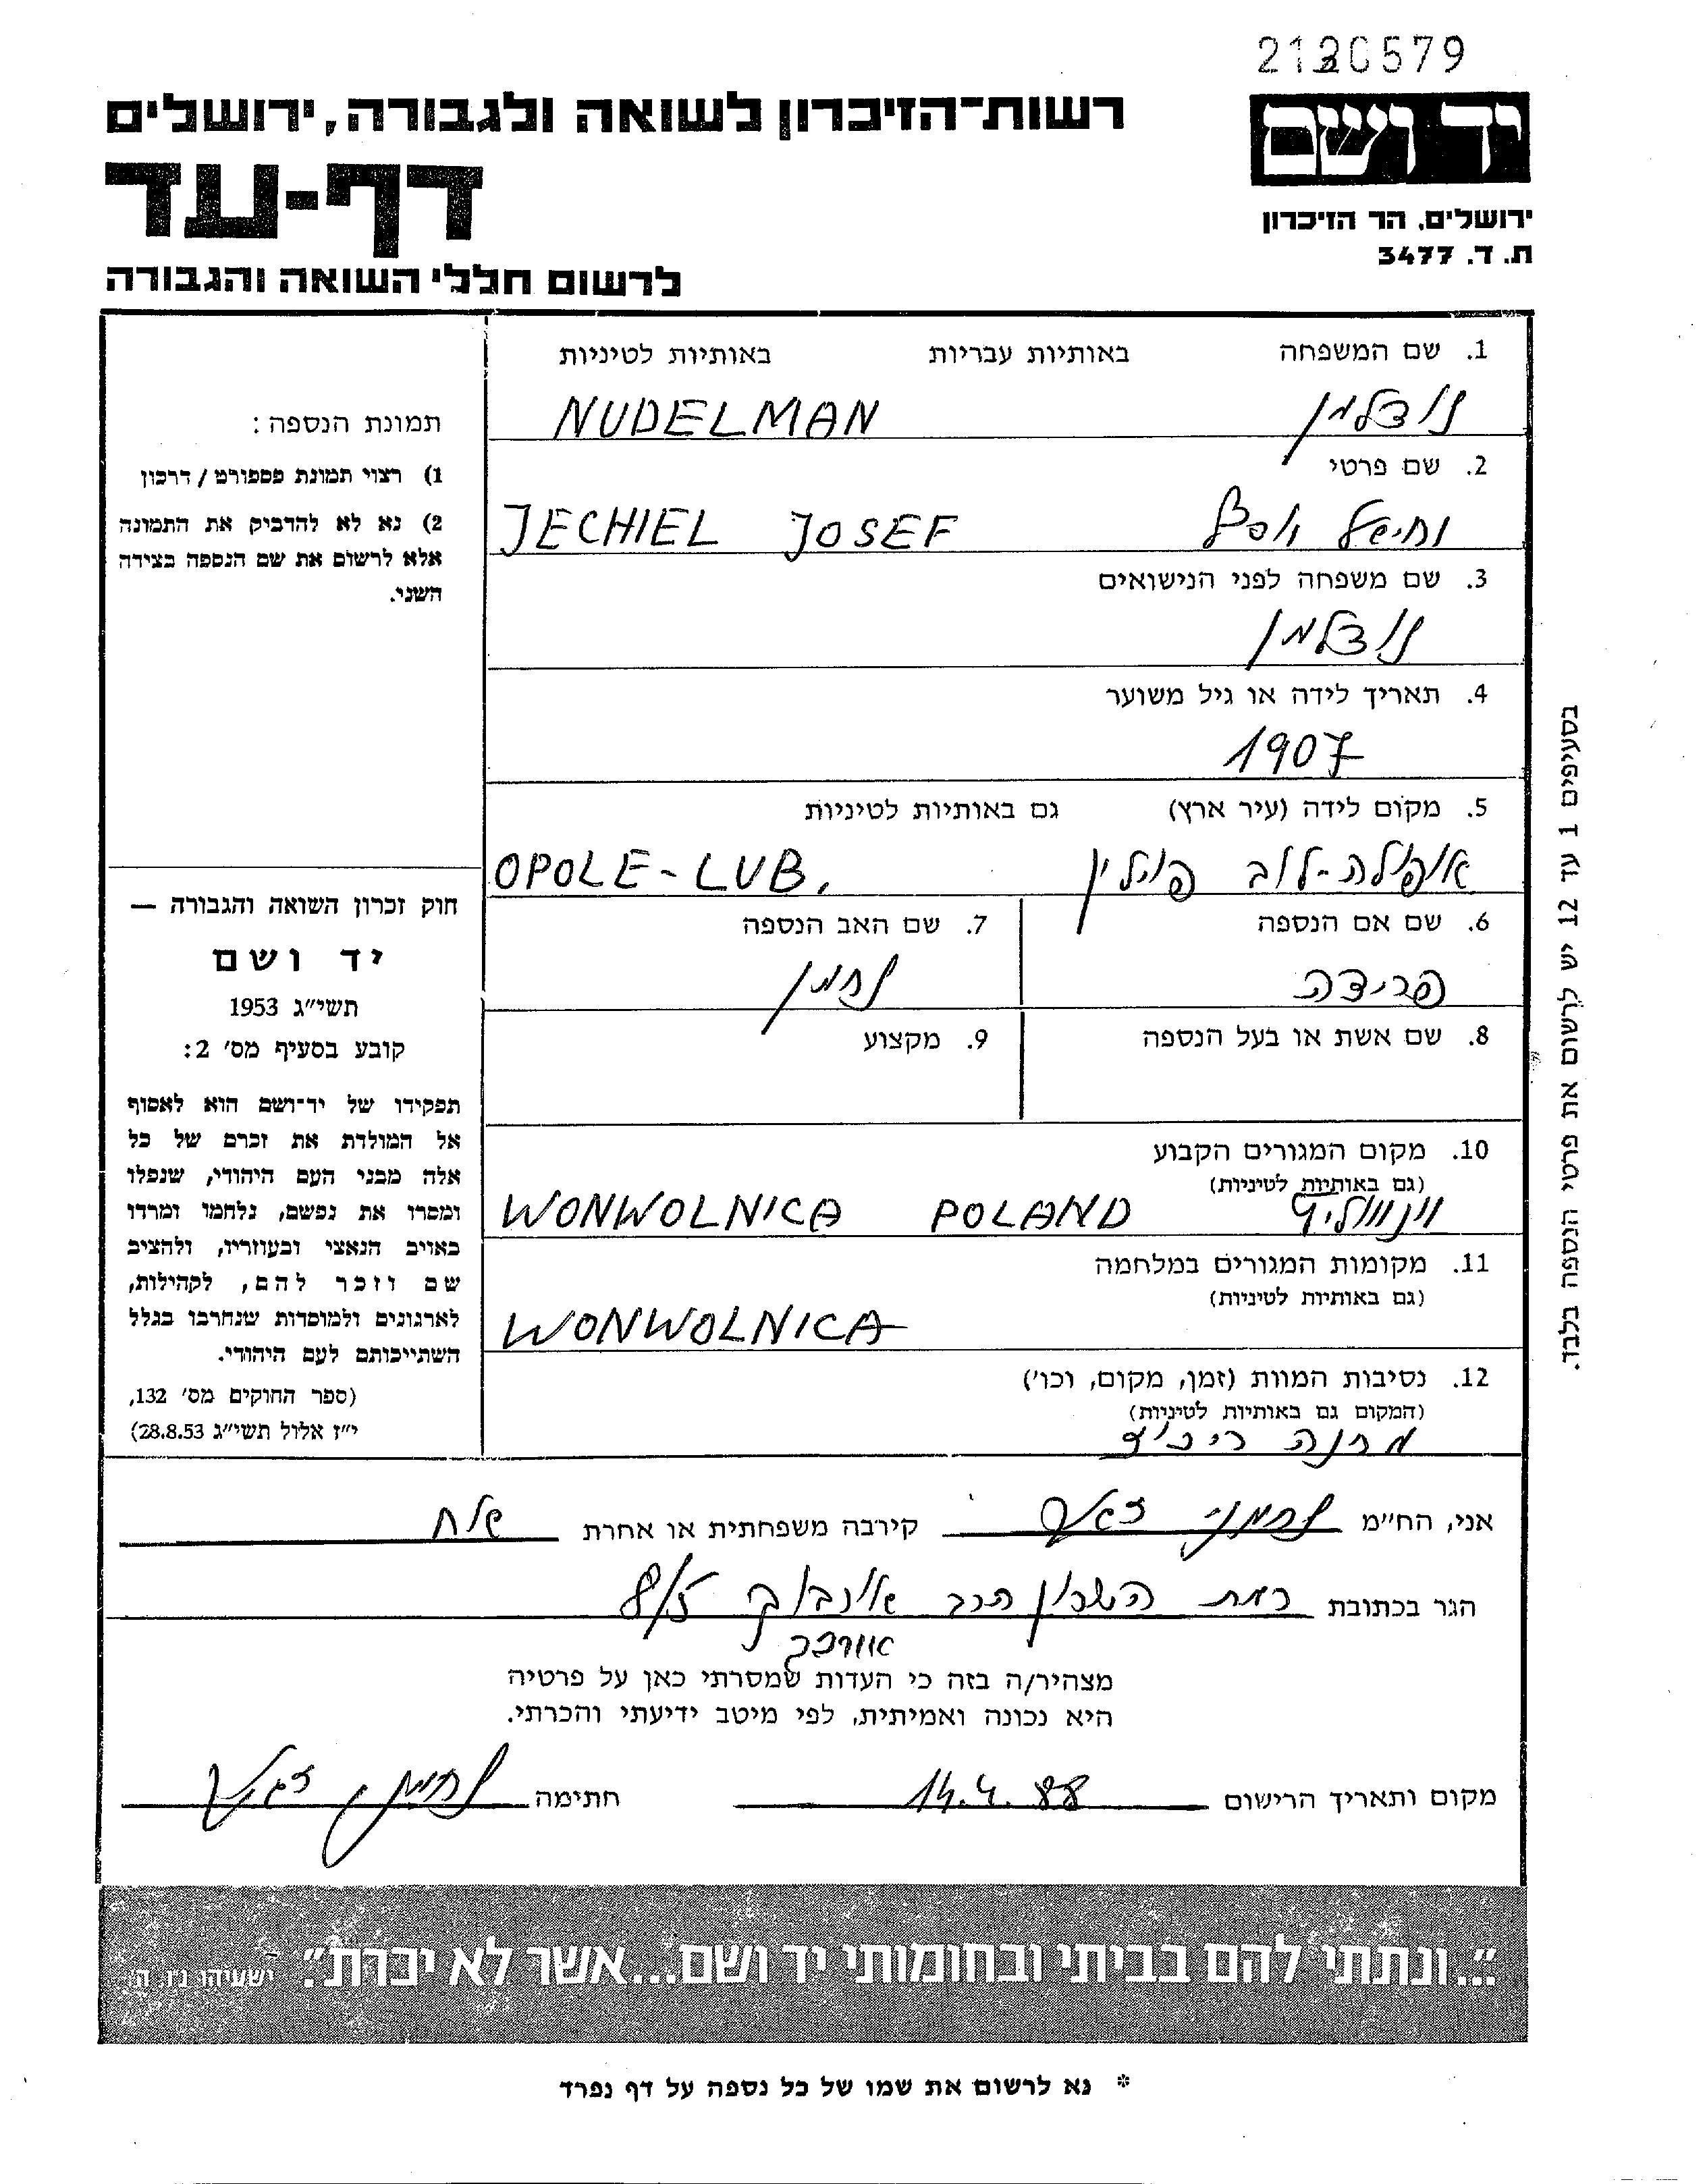 2120579
יד ושם
ירושלים, הר הזיכרון
ת. ד. 3477
רשות־הזיכרון לשואה ולגבורה, ירושלים
דף-עד
לרשום חללי השואה והגבורה
1. שם המשפחה באותיות עבריות באותיות לטיניות
נודלמן NUDELMAN
2. שם פרטי
יחיאל יוסף JECHIEL JOSEF
3. שם משפחה לפני הנישואים
נודלמן
4. תאריך לידה או גיל משוער
1907
5. מקום לידה (עיר ארץ) גם באותיות לטיניות
אופולה-לוב פולין OPOLE-LUB.
6. שם אם הנספה 7. שם האב הנספה
פרידה נחמן
8. שם אשת או בעל הנספה 9. מקצוע
10. מקום המגורים הקבוע
(גם באותיות לטיניות)
WONWOLNICA POLAND
11. מקומות המגורים במלחמה
(גם באותיות לטיניות)
WONWOLNICA
12. נסיבות המוות (זמן, מקום, וכו')
(המקום גם באותיות לטיניות)
מחנה ריכוז
תמונת הנספה:
1) רצוי תמונת פספורט / דרכון
2) נא לא להדביק את התמונה
אלא לרשום את שם הנספה בצידה
השני.
חוק זכרון השואה והגבורה —
יד ושם
תשי״ג 1953
קובע בסעיף מס׳ 2:
תפקידו של יד־ושם הוא לאסוף
אל המולדת את זכרם של כל
אלה מבני העם היהודי, שנפלו
ומסרו את נפשם, נלחמו ומרדו
באויב הנאצי ובעוזריו, ולהציב
שם וזכר להם, לקהילות,
לארגונים ולמוסדות שנחרבו בגלל
השתייכותם לעם היהודי.
(ספר החוקים מס׳ 132,
י״ז אלול תשי״ג 28.8.53)
בסעיפים 1 עד 12 יש לרשום את פרטי הנספה בלבד.
אני, הח״מ נחמני זאב קירבה משפחתית או אחרת אח
הגר בכתובת רמת השרון הרב
אוירבך
מצהיר/ה בזה כי העדות שמסרתי כאן על פרטיה
היא נכונה ואמיתית, לפי מיטב ידיעתי והכרתי.
מקום ותאריך הרישום 14.4.88 חתימה
״...ונתתי להם בביתי ובחומותי יד ושם...אשר לא יכרת״. ישעיהו נו, ה.
* נא לרשום את שמו של כל נספה על דף נפרד